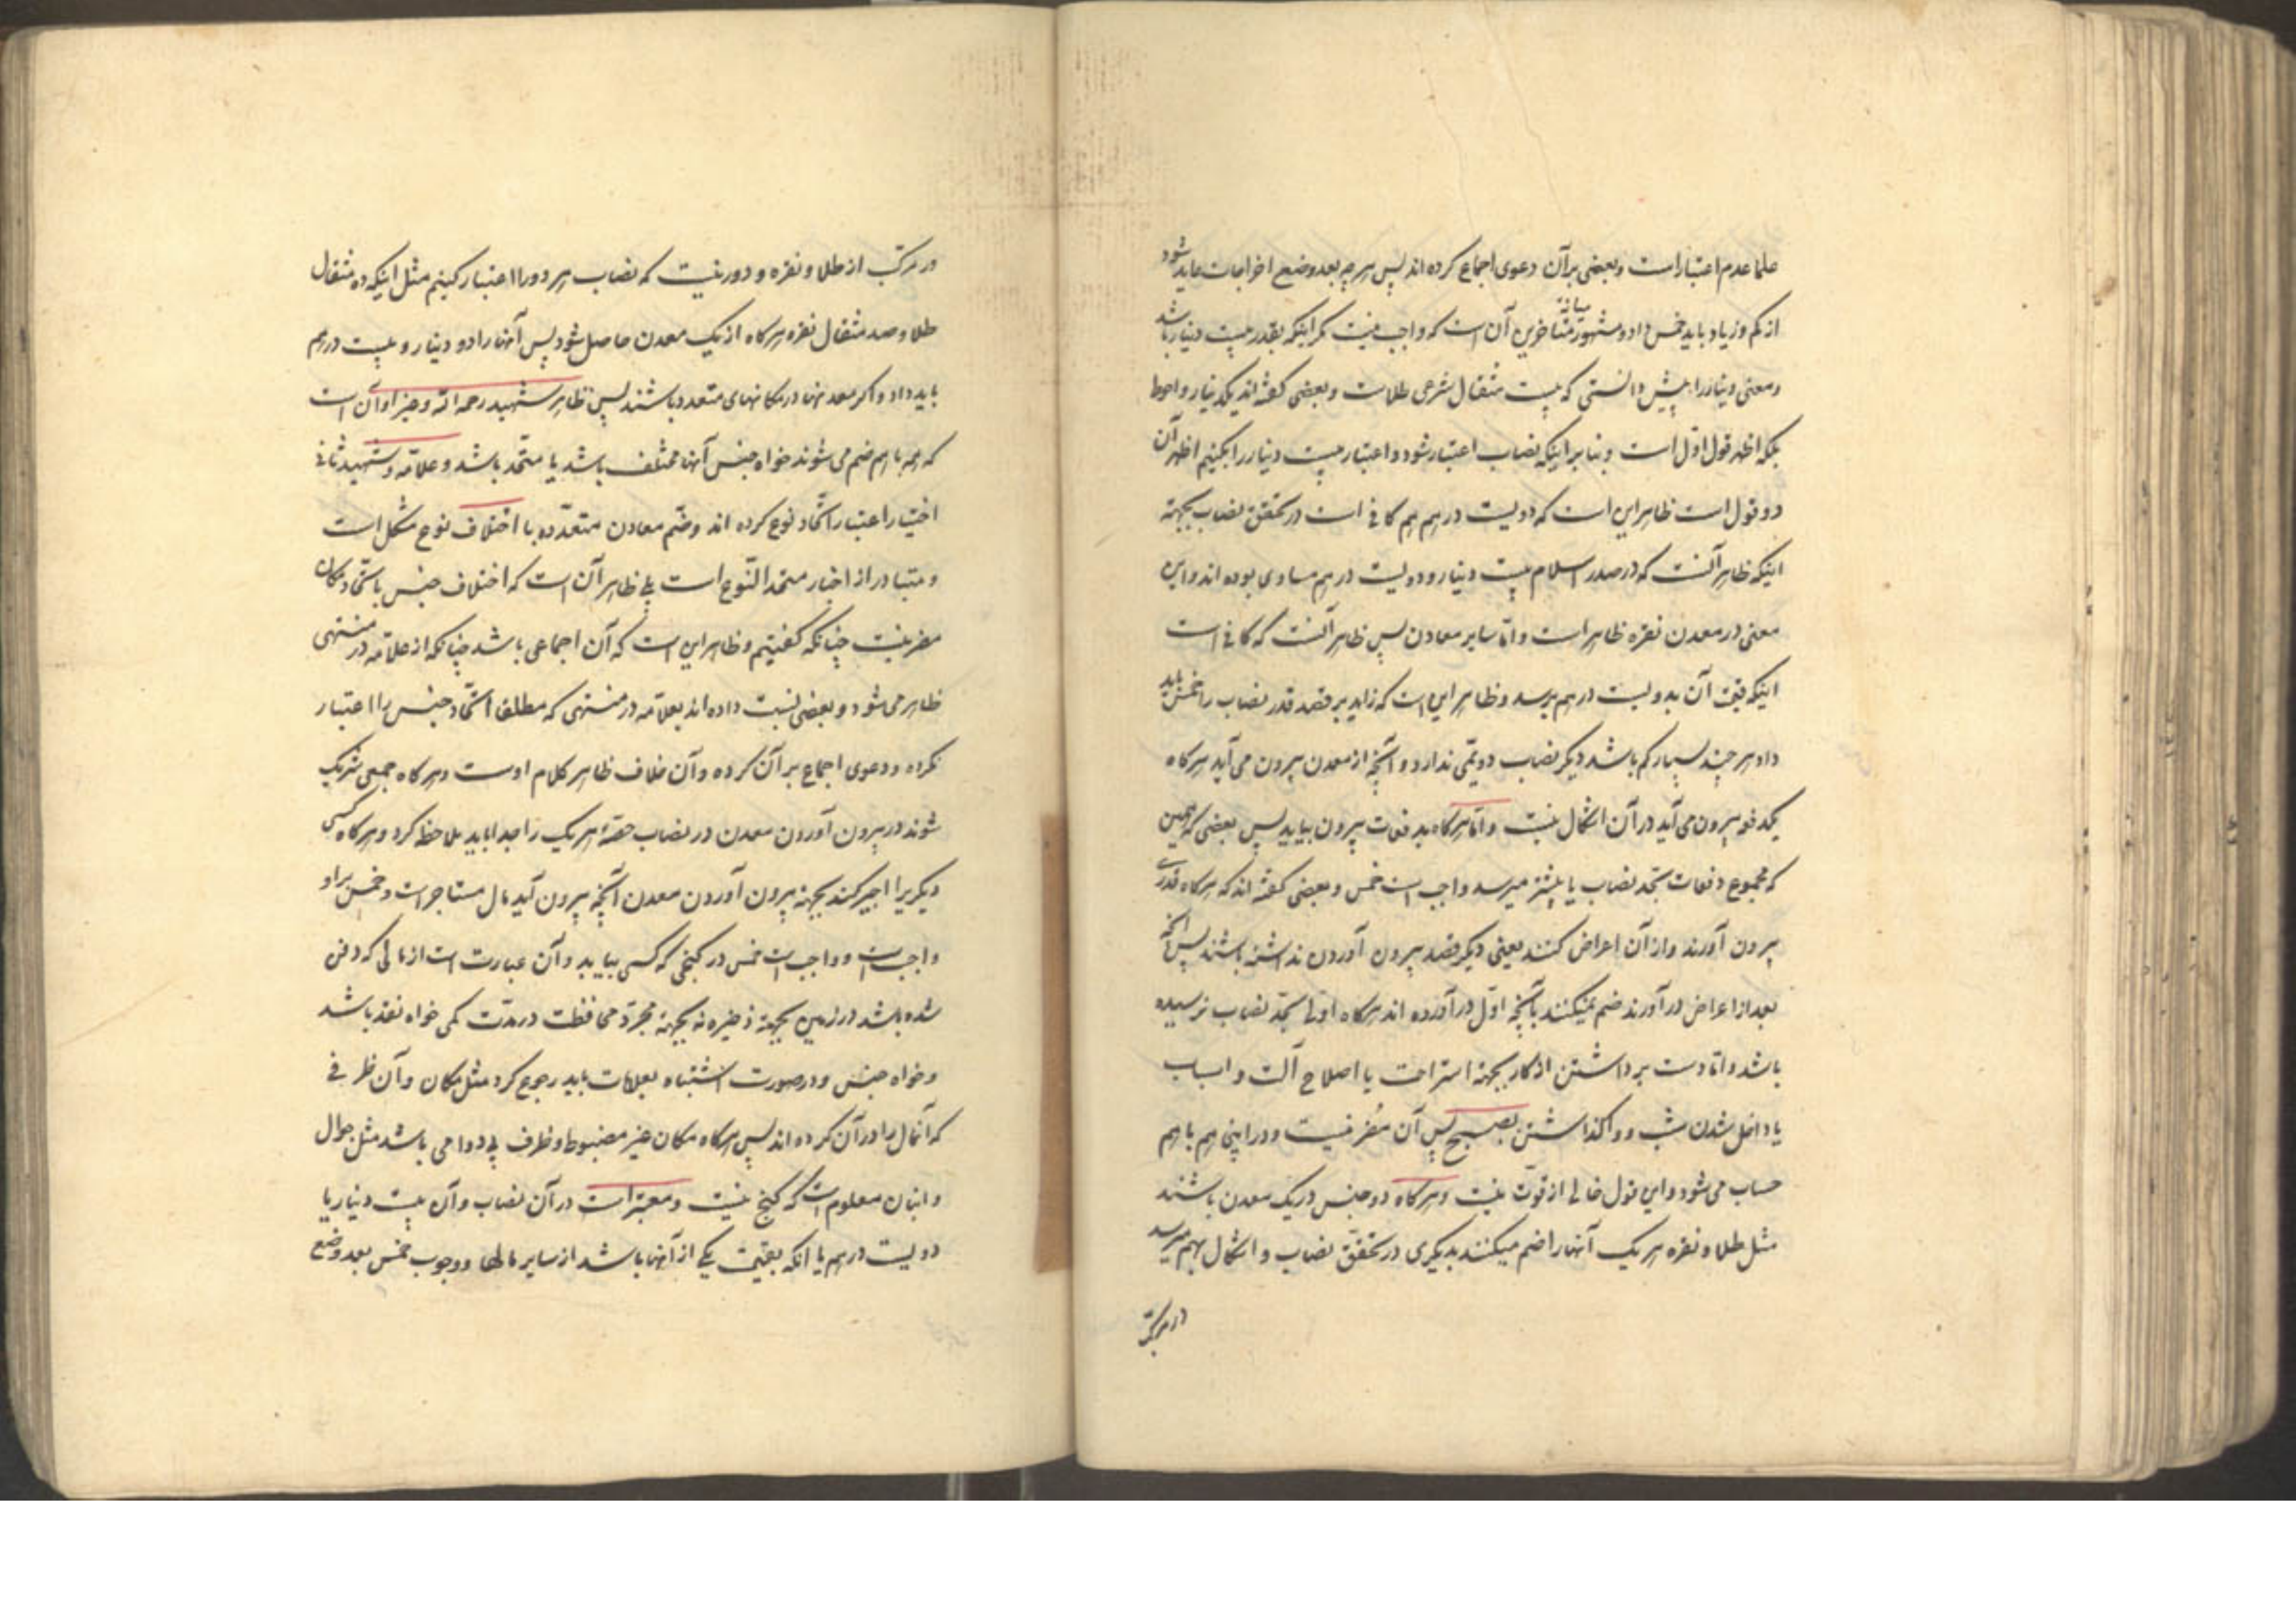 علما عدم اعتبار است و بعضی بر آن دعوی اجماع کرده اند پس هر چه بعد وضع اخراجات عاید شود
از کم و زیاد باید خمس داد و مشهور میانهٔ متاخرین آن است که واجب نیست مگر اینکه بقدر بیست دینار باشد
و معنی دینار را پیش دانستی که بیست مثقال شرعی طلاست و بعضی گفته اند یکدینار و احوط
بلکه اظهر قول اول است و بنا بر اینکه نصاب اعتبار شود و اعتبار بیست دینار را بکنیم اظهر آن
دو قول است ظاهر این است که دویست درهم هم کافی است در تحقق نصاب بجهة
اینکه ظاهر آنست که در صدر اسلام بیست دینار و دویست درهم مساوی بوده اند و این
معنی در معدن نقره ظاهر است و اما سایر معادن پس ظاهر آنست که کافی است
اینکه قیمت آن بدویست درهم برسد و ظاهر این است که زاید بر قدر نصاب را خمس باید
داد هر چند بسیار کم باشد دیگر نصاب دویمی ندارد و آنچه از معدن بیرون می آید هرگاه
یکدفعه بیرون می آید در آن اشکال نیست و اما هرگاه بدفعات بیرون بیاید پس بعضی که همین
که مجموع دفعات بحد نصاب یا بیشتر میرسد واجب است خمس و بعضی گفته اند که هرگاه قدری
بیرون آورند و از آن اعراض کنند یعنی دیگر قصد بیرون آوردن نداشته باشند پس آنچه
بعد از اعراض در آورند ضم نمیکنند بآنچه اول در آورده اند هرگاه اولی بحد نصاب نرسیده
باشد و اما دست برداشتن از کار بجهة استراحت یا اصلاح آلت و اسباب
یا داخل شدن شب و واگذاشتن بصبح پس آن مضر نیست و در اینی هم با هم
حساب می شود و این قول خالی از قوت نیست و هرگاه دو جنس در یک معدن باشند
مثل طلا و نقره هر یک آنها را ضم میکنند بدیگری در تحقق نصاب و اشکال بهم میرسد
در مرکب
در مرکب از طلا و نقره و دور نیست که نصاب هر دو را اعتبار کنیم مثل اینکه ده مثقال
طلا و صد مثقال نقره هرگاه از یک معدن حاصل شود پس آنها را دو دینار و بیست درهم
باید داد و اگر معدنها در مکانهای متعدد باشند پس ظاهر شهید رحمه الله و غیر او آن است
که همه با هم ضم می شوند خواه جنس آنها مختلف باشد یا متحد باشد و علامه و شهید ثانی
اختیار اعتبار اتحاد نوع کرده اند و ضم معادن متعدده با اختلاف نوع مشکل است
و متبادر از اخبار متحد النوع است بلی ظاهر آن است که اختلاف جنس با اتحاد مکان
مضر نیست چنانکه گفتیم و ظاهر این است که آن اجماعی باشد چنانکه از علامه در منتهی
ظاهر می شود و بعضی نسبت داده اند بعلامه در منتهی که مطلقا اتحاد جنس را اعتبار
نکرده و دعوی اجماع بر آن کرده و آن خلاف ظاهر کلام اوست و هرگاه جمعی شریک
شوند در بیرون آوردن معدن در نصاب حصهٔ هر یک را جدا باید ملاحظه کرد و هرگاه کسی
دیگریرا اجیر کند بجهة بیرون آوردن معدن آنچه بیرون آید مال مستاجر است و خمس بر او
واجب است و واجب است خمس در گنجی که کسی بیابد و آن عبارت است از مالی که دفن
شده باشد در زمین بجهة ذخیره نه بجهة مجرد محافظت در مدت کمی خواه نقد باشد
و خواه جنس و در صورت اشتباه بعلامات باید رجوع کرد مثل مکان و آن ظرفی
که آنمال را در آن کرده اند پس هرگاه مکان غیر مضبوط و ظرف بی دوامی باشد مثل جوال
و انبان معلوم است که گنج نیست و معتبر است در آن نصاب و آن بیست دینار یا
دویست درهم یا آنکه بقیمت یکی از آنها باشد از سایر مالها و وجوب خمس بعد وضع